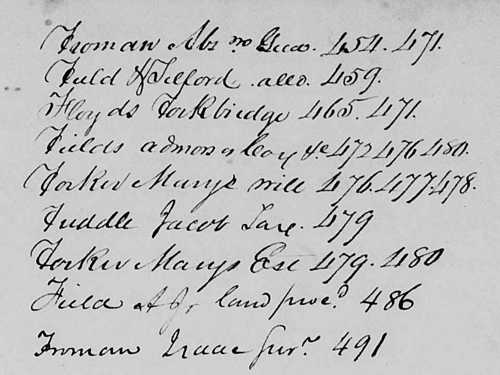 Froman Abs no Guar. 454. 471.
Field & Telford alld. 459.
Floyds Fork bridge 465. 471.
Fields admors of &c 472 476 480.
Forker Marys will 476. 477. 478.
Fuddle Jacob 479
Forker Marys Est 479. 480
Field A Jr land proc.d 486
Froman Isaac Sur.r 491